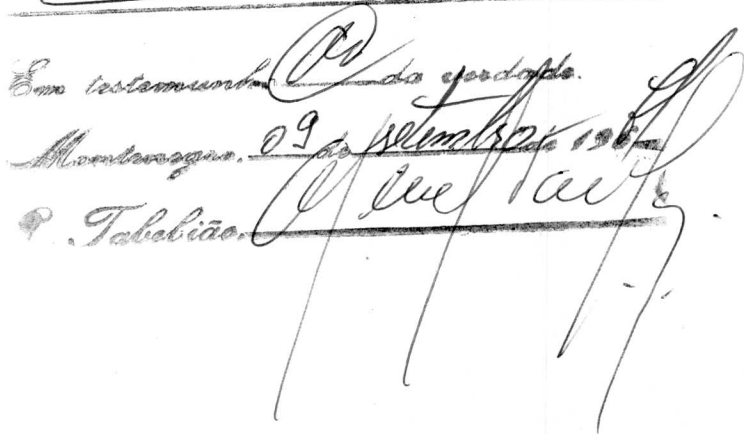 Em testemunho da verdade.
Montenegro, 09 de setembro de 196
O Tabelião,